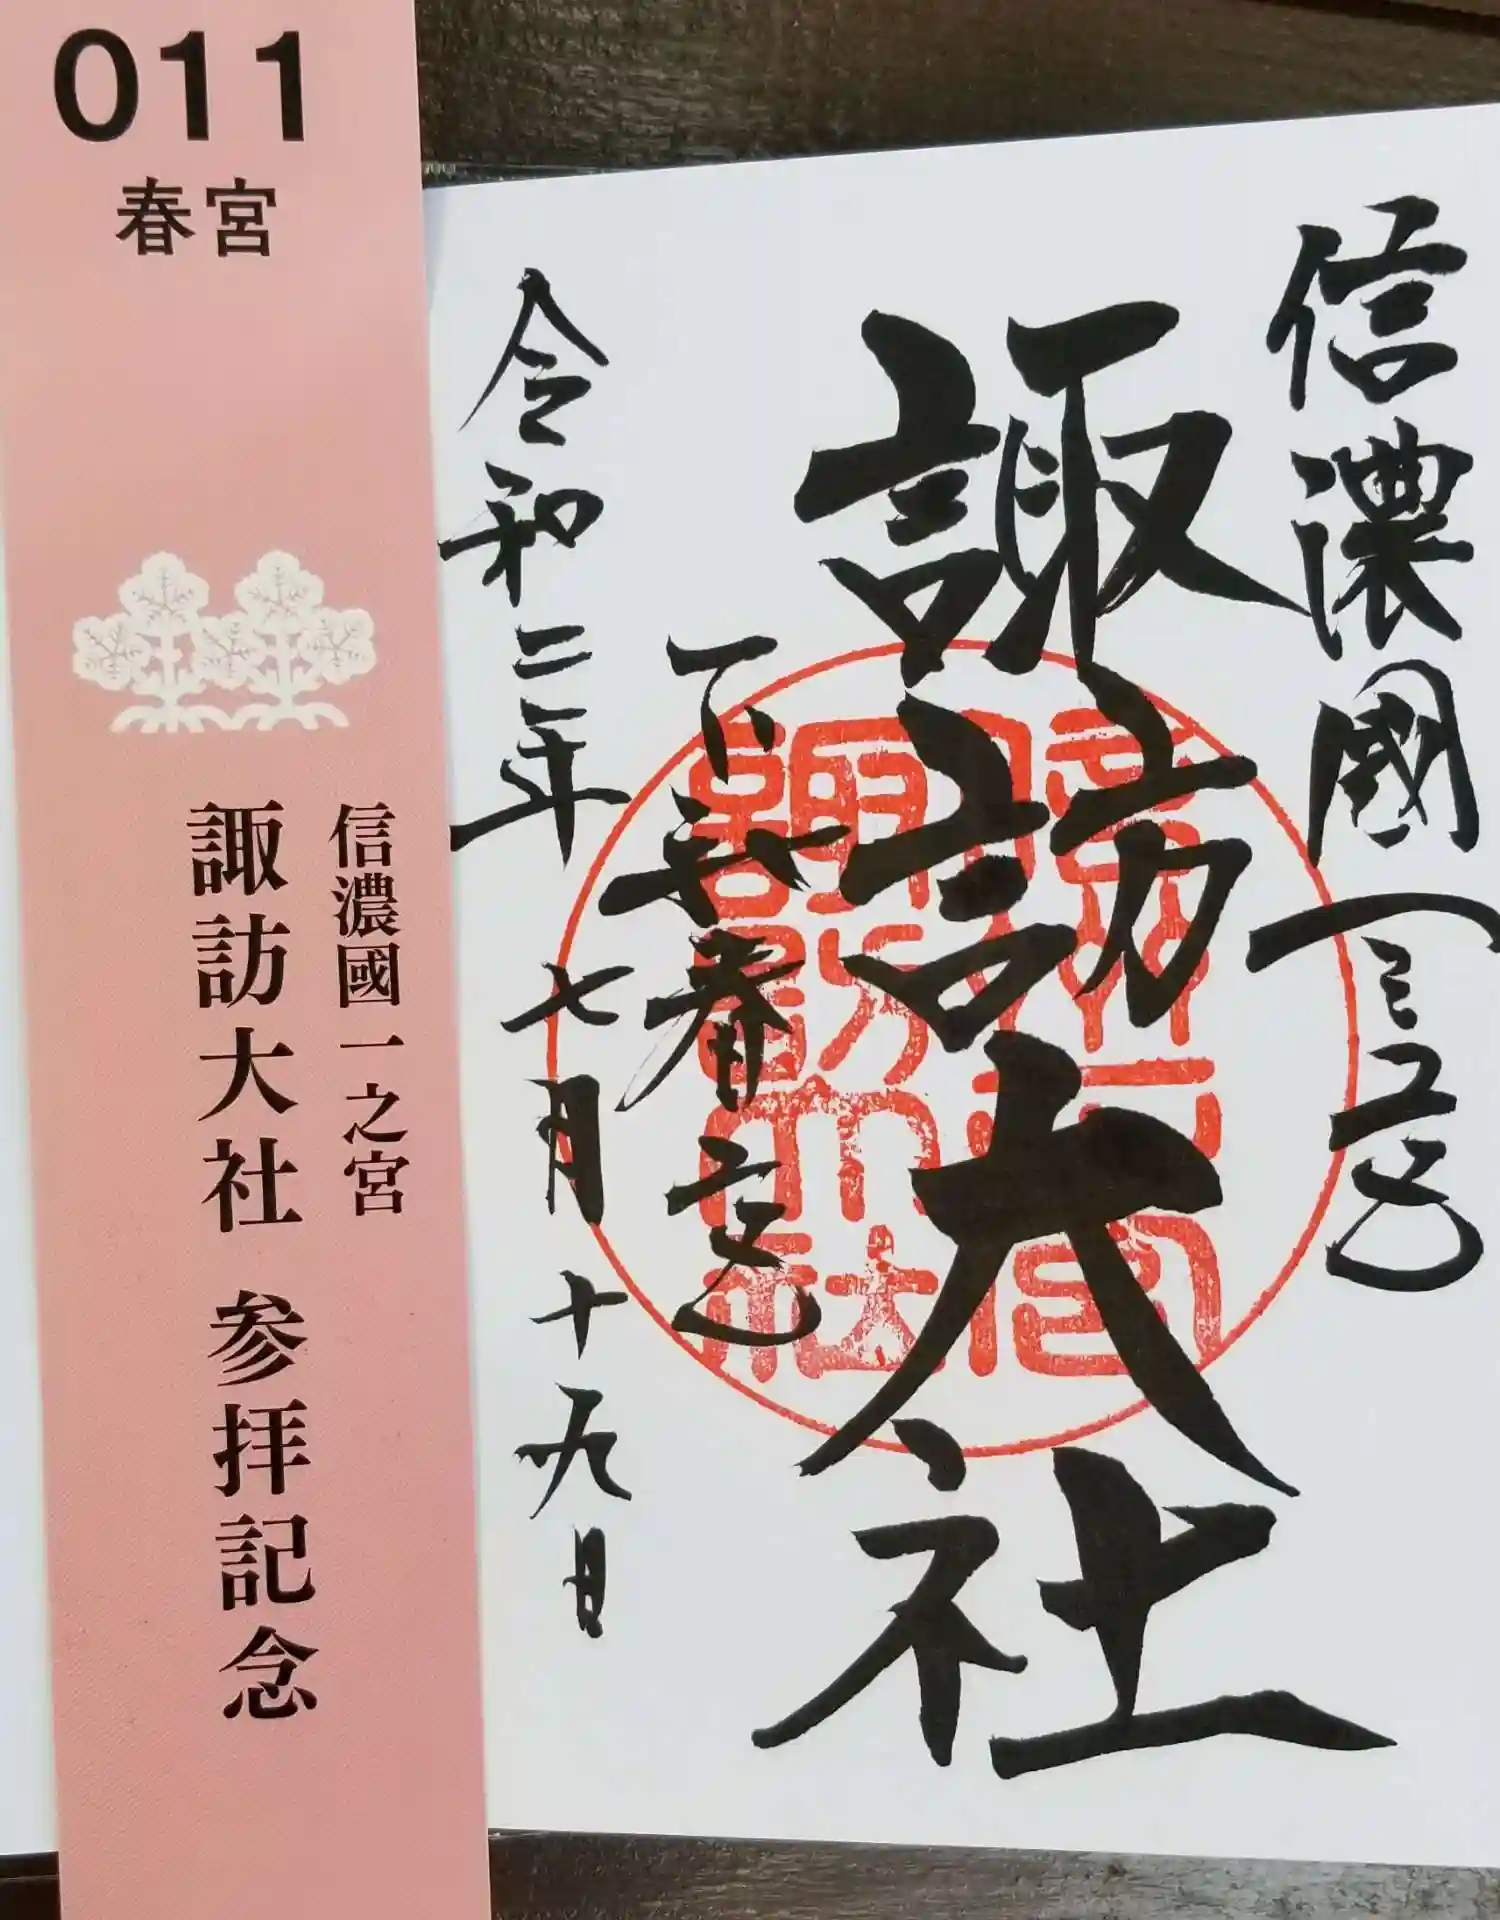 011
春宮
信濃國一之宮
諏訪大社 参拝記念
信濃國一之宮
諏訪大社
下社春宮
令和二年七月十九日